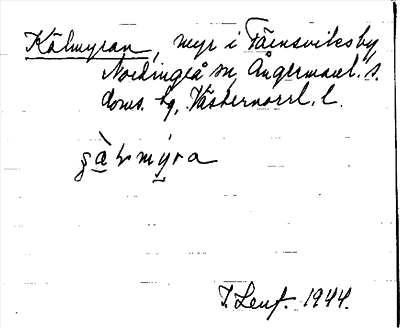 Kälmyran, myr i Fäensviksby,
Nordingrå sn, Ångermanl. s.
doms. hg, Västernorrl. l.
myra
I. Lenf. 1944.